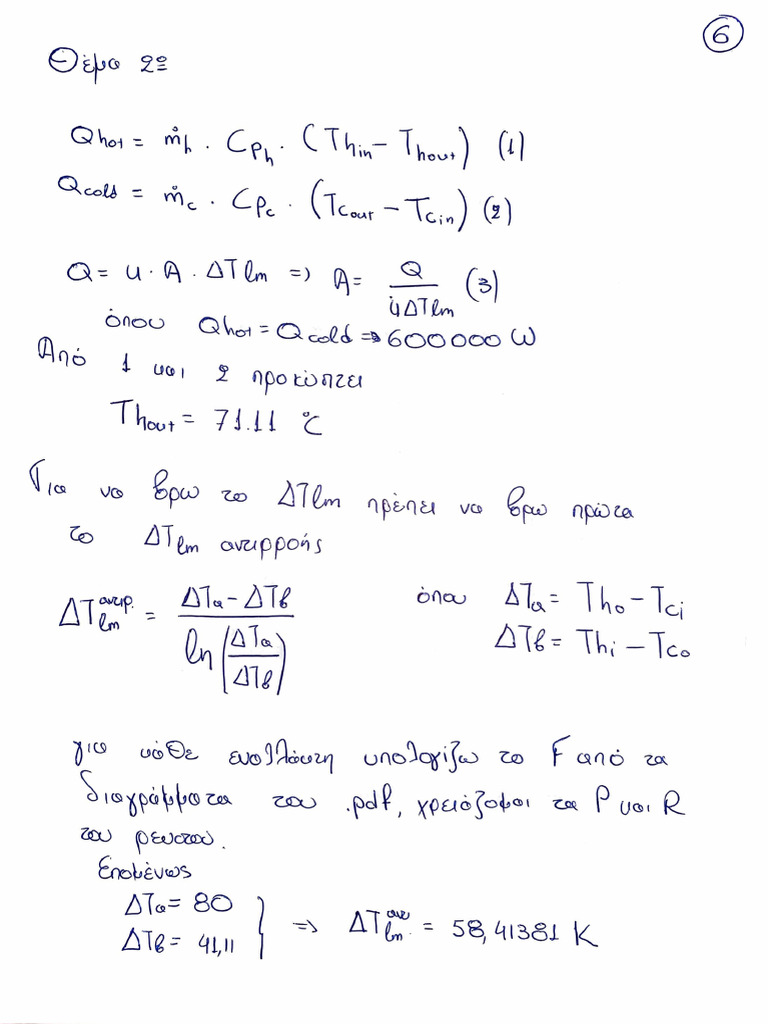 6
Θέμα 2º
Qhot = ṁh . Cph . (Thin − Thout) (1)
Qcold = ṁc . Cpc . (Tcout − Tcin) (2)
Q = u · A . ΔTlm => A = Q / uΔTlm (3)
όπου Qhot = Qcold => 600000 W
Από 1 και 2 προκύπτει
Thout = 71.11 °C
Για να βρω το ΔTlm πρέπει να βρω πρώτα
το ΔTlm αντιρροής
ΔTlm^αντιρ. = (ΔTa − ΔTβ) / ln(ΔTa / ΔTβ) όπου ΔTa = Tho − Tci
ΔTβ = Thi − Tco
για κάθε εναλλάκτη υπολογίζω το F από τα
διαγράμματα του .pdf, χρειάζομαι τα P και R
του ρευστού.
Επομένως
ΔTa = 80
ΔTβ = 41,11 } => ΔTlm^αν = 58,41381 K